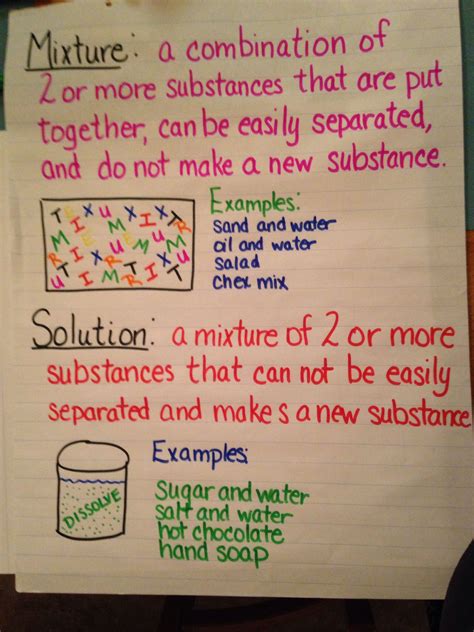 Mixture: a combination of
2 or more substances that are put
together, can be easily separated,
and do not make a new substance.
Examples:
sand and water
oil and water
salad
chex mix
Solution: a mixture of 2 or more
substances that can not be easily
separated and makes a new substance
Examples:
Sugar and water
salt and water
hot chocolate
hand soap
DISSOLVE